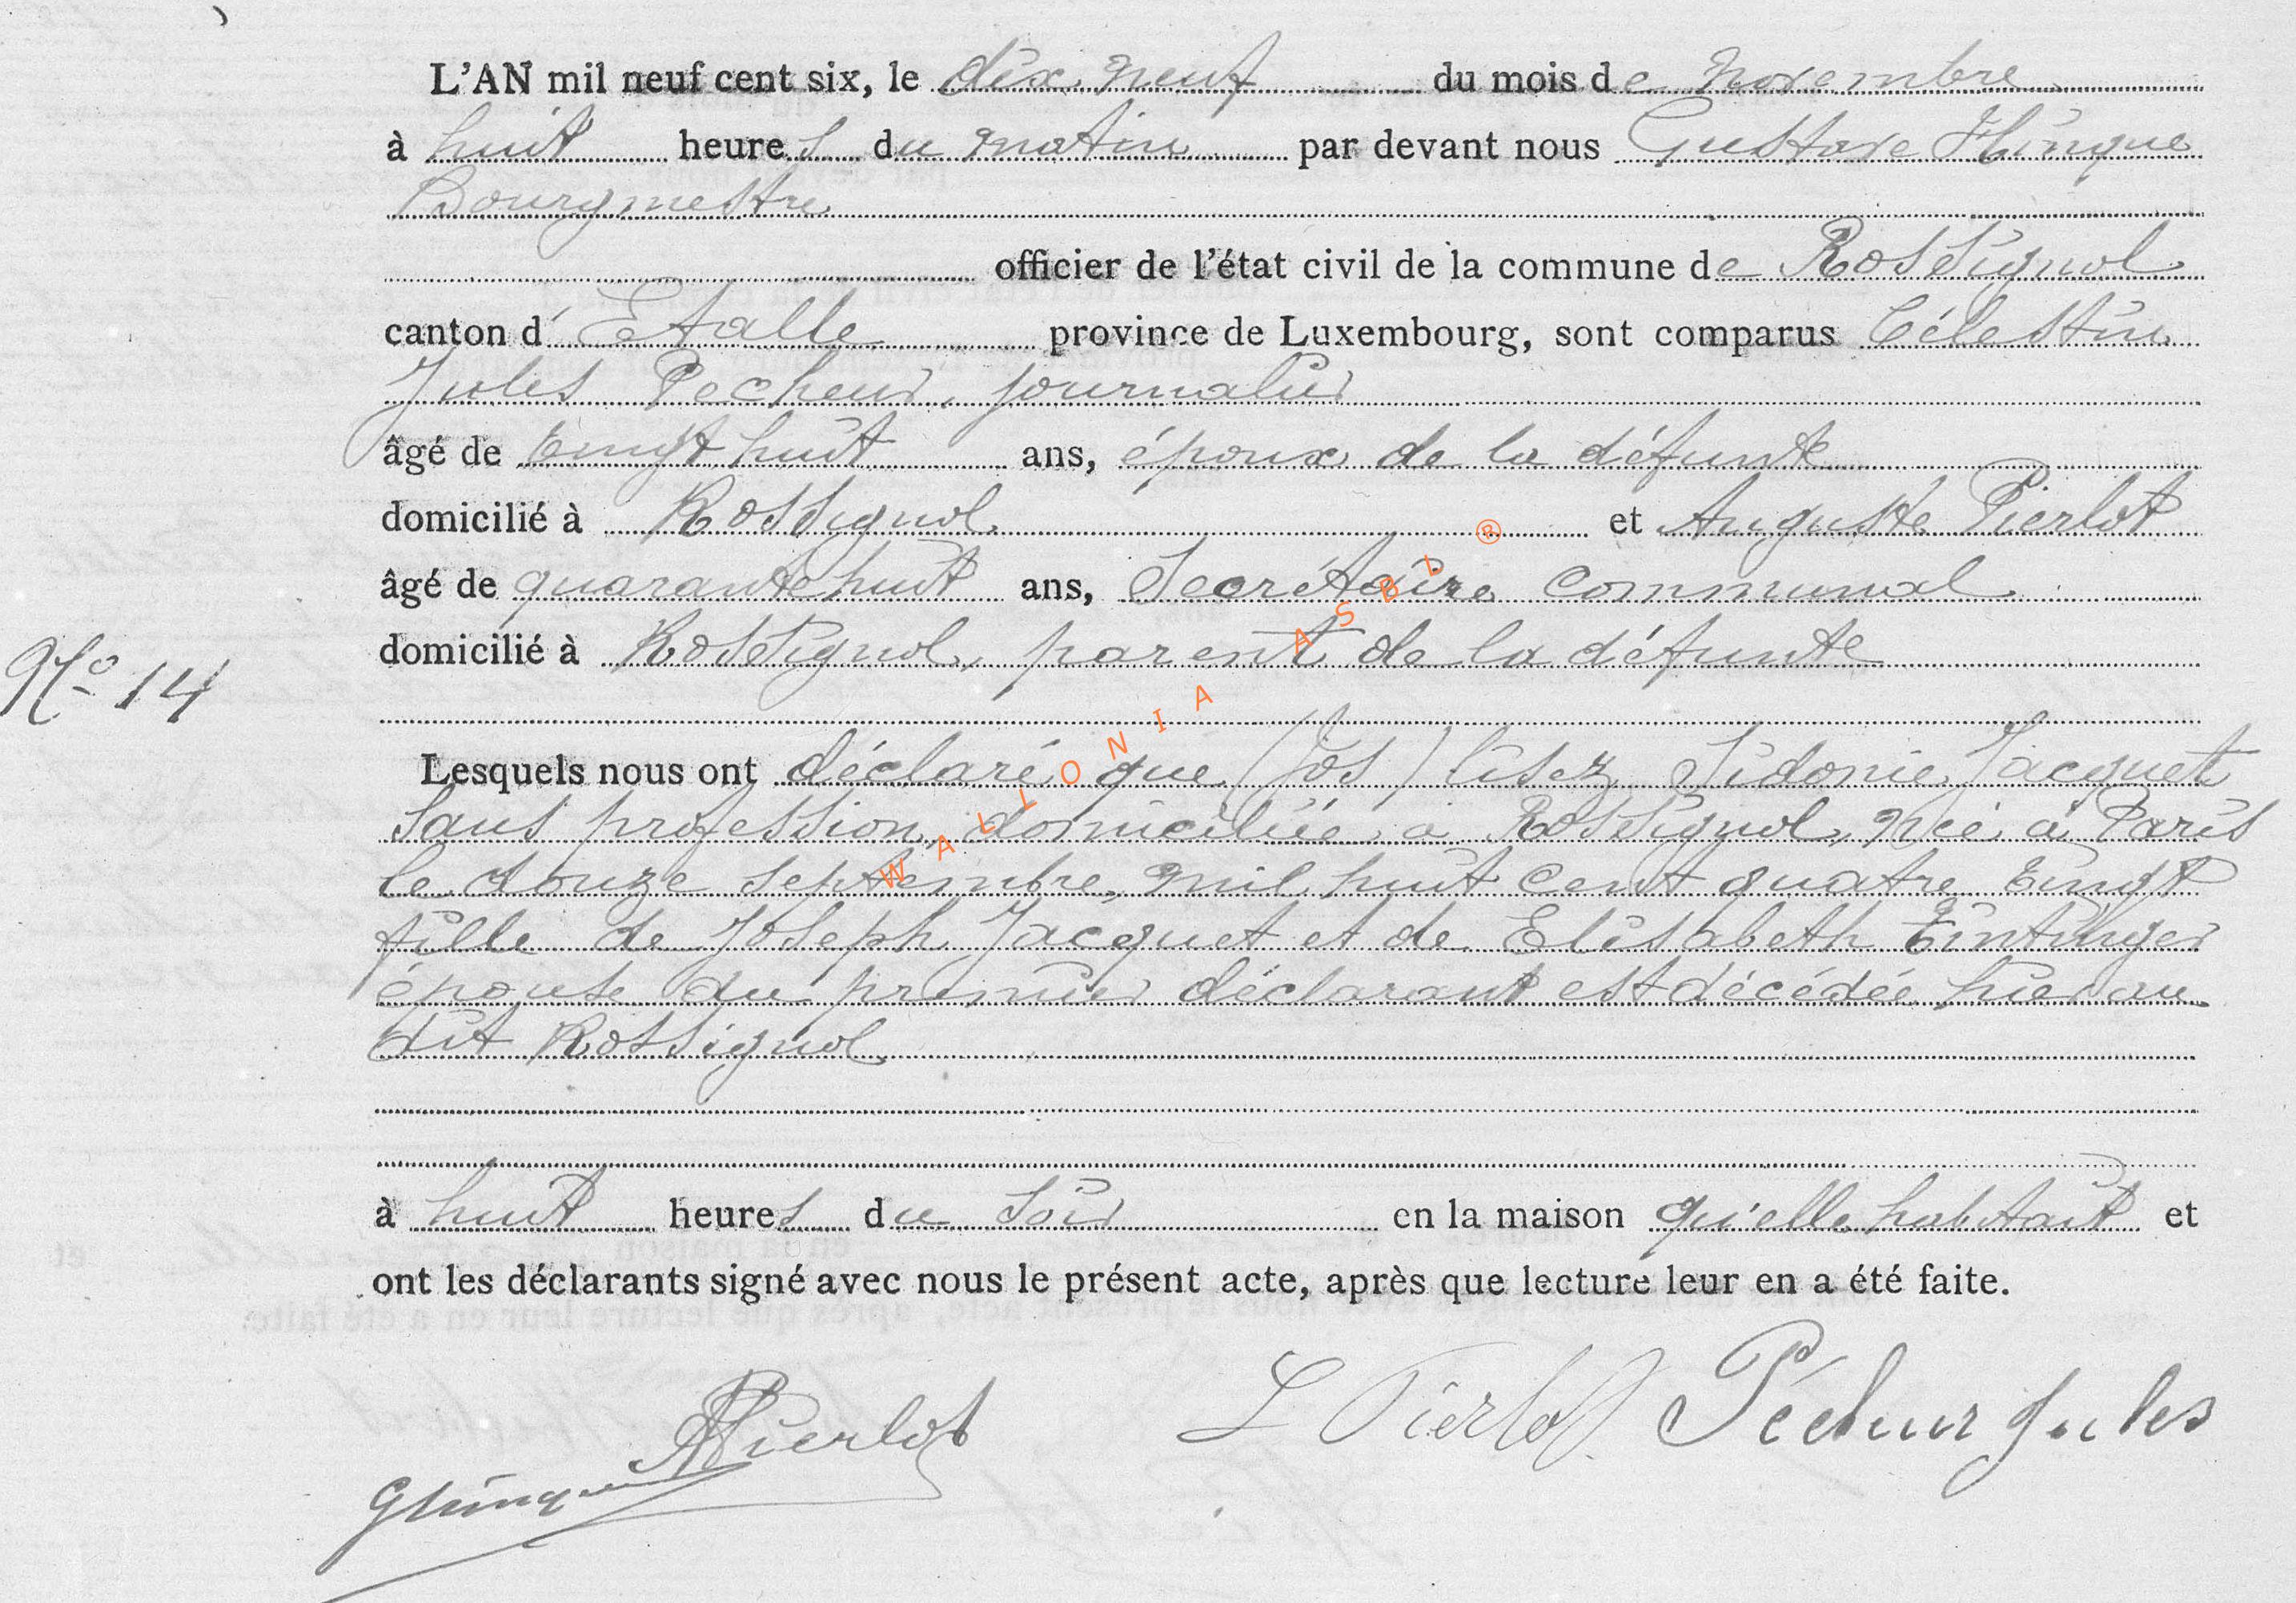 L'AN mil neuf cent six, le dix neuf du mois de novembre
à huit heures du matin par devant nous Gustave Hurique
Bourgmestre
officier de l'état civil de la commune de Rossignol
canton d'Etalle province de Luxembourg, sont comparus Célestin
Jules Pecheur, journalier
âgé de vingt huit ans, époux de la défunte
domicilié à Rossignol et Auguste Pierlot
âgé de quarante huit ans, Secrétaire communal
domicilié à Rossignol, parent de la défunte
No 14
Lesquels nous ont déclaré que (Jos) lisez Sidonie Jacquet
Sans profession, domiciliée à Rossignol, née à Paris
le douze septembre, mil huit cent quatre vingt
fille de Joseph Jacquet et de Elisabeth
épouse du premier déclarant est décédée hier au
dit Rossignol
à huit heures du soir en la maison qu'elle habitait et
ont les déclarants signé avec nous le présent acte, après que lecture leur en a été faite.
APierlot L Pierlot Pécheur Jules
WALLONIA ASBL ®